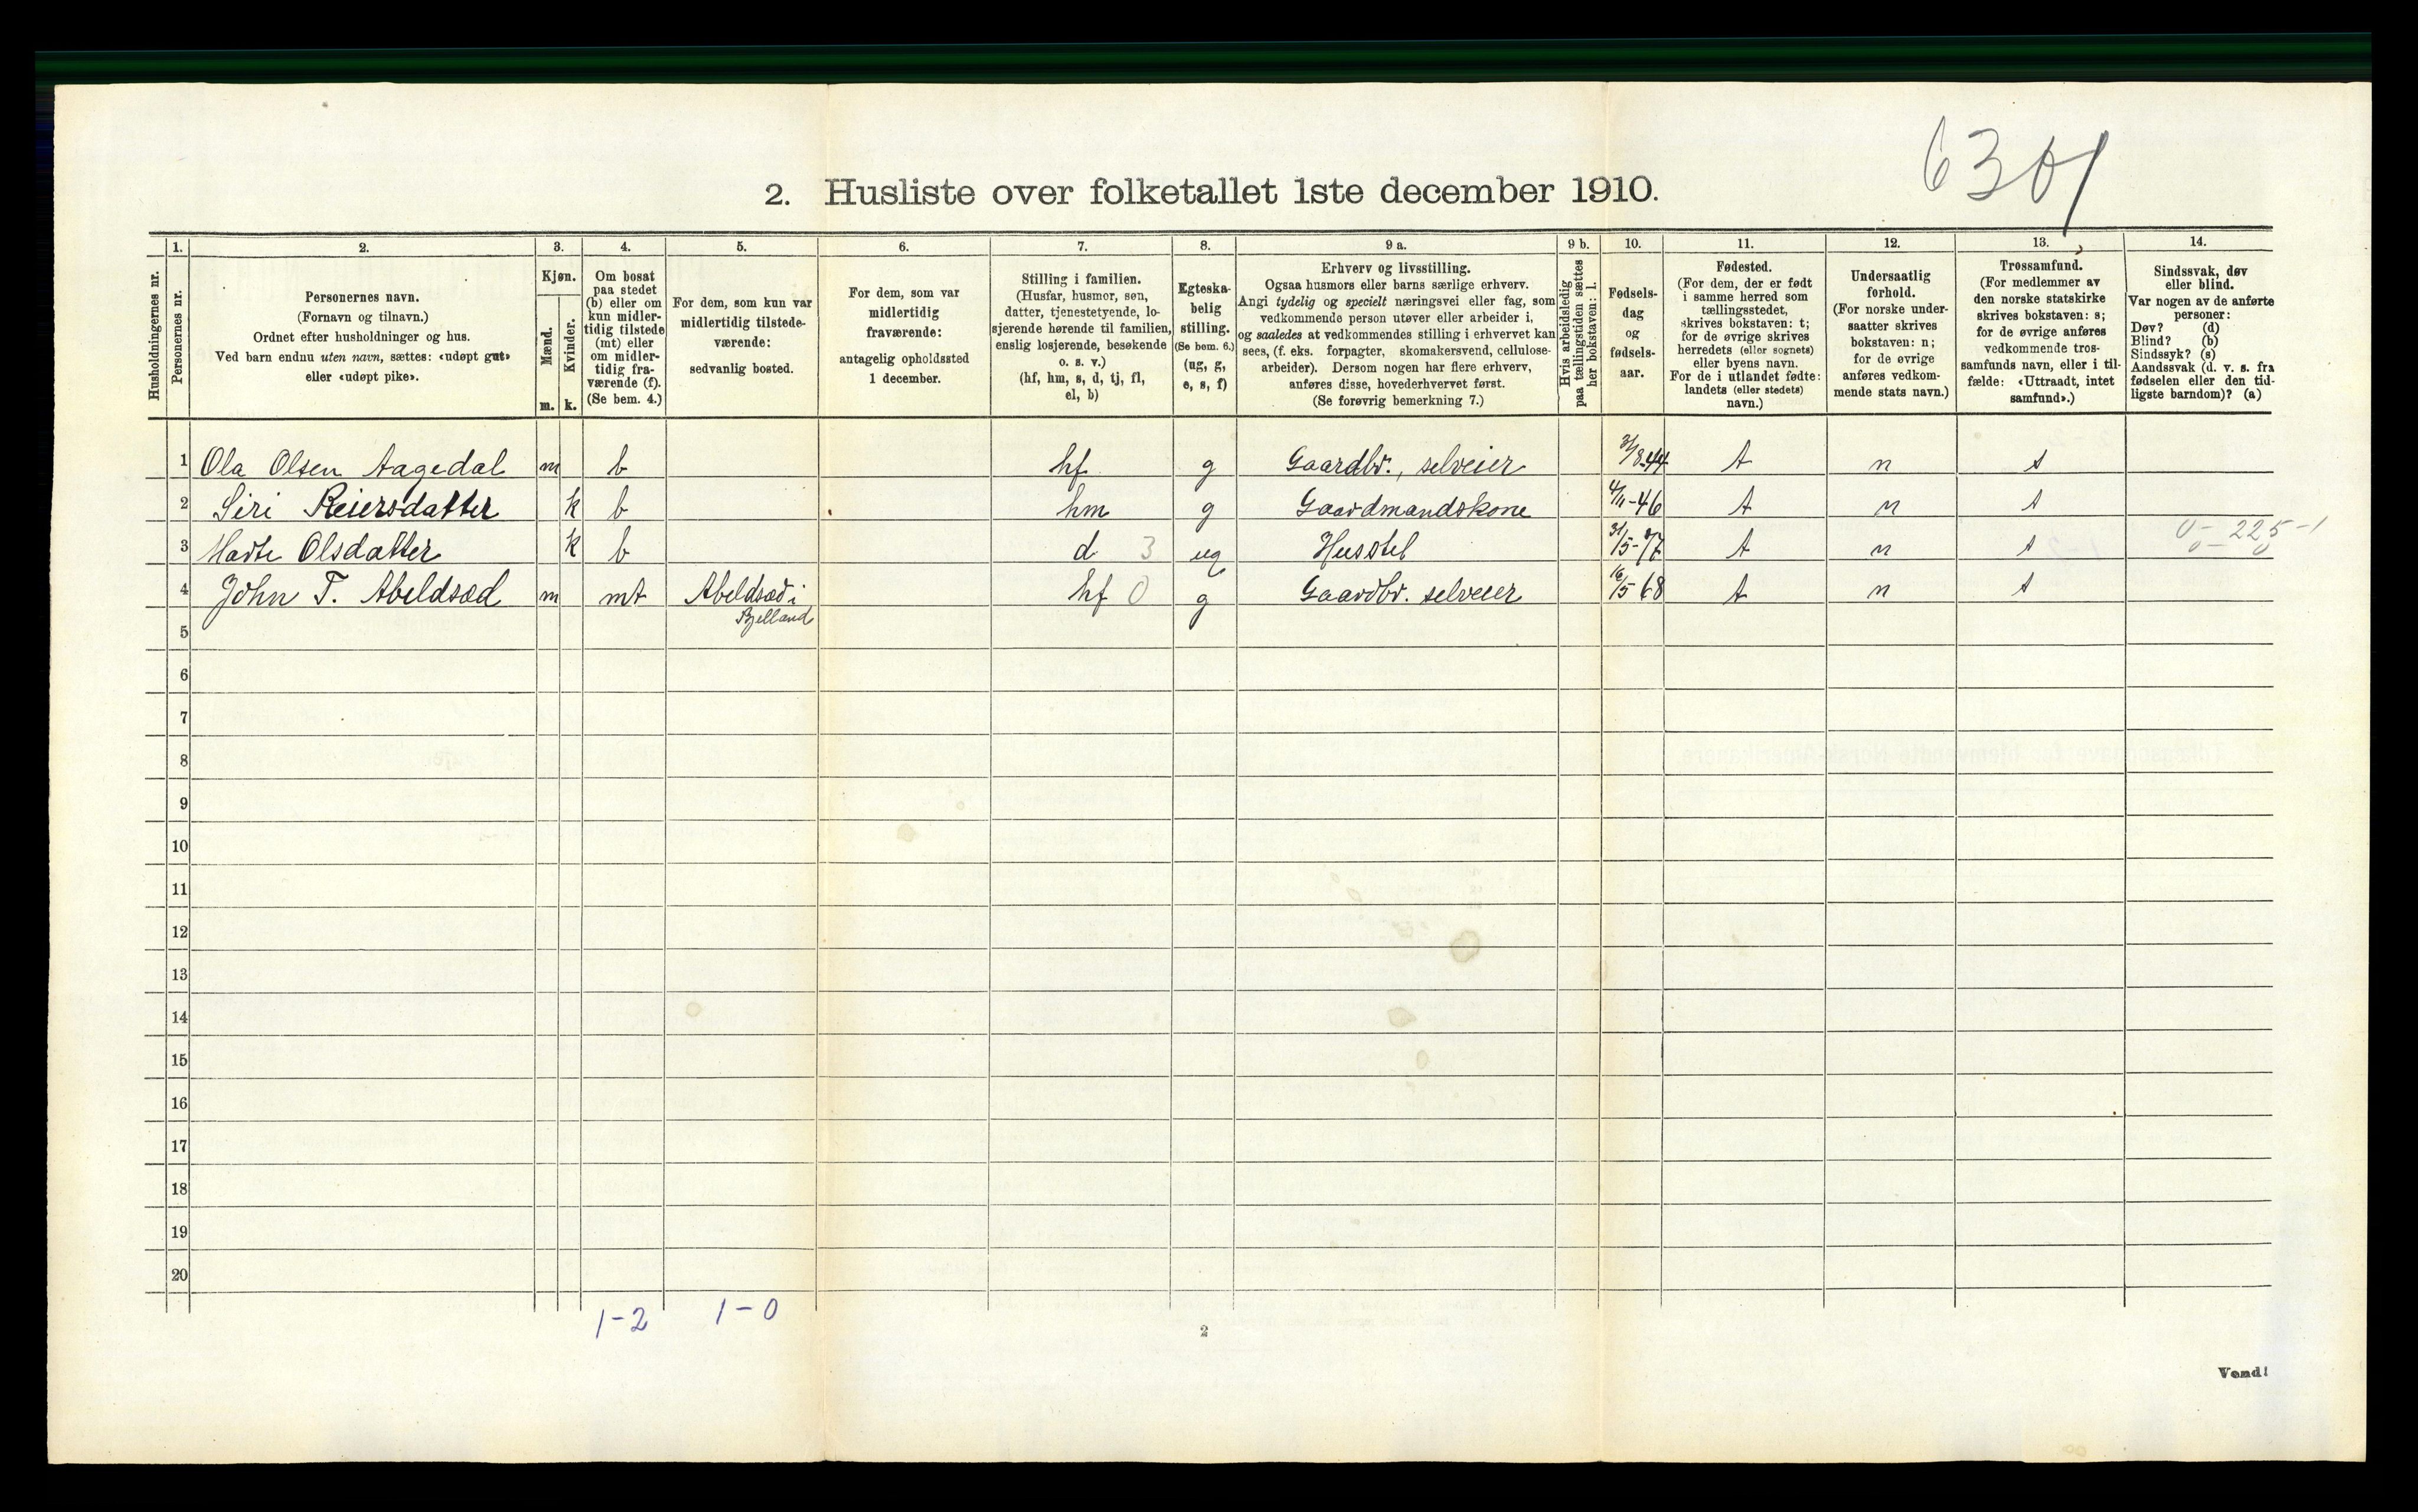 6301
2. Husliste over folketallet 1ste december 1910.
1. 2. 3. 4. 5. 6. 7. 8. 9 a. 9 b. 10. 11. 12. 13. 14.
Husholdningernes nr.
Personernes nr.
Personernes navn.
(Fornavn og tilnavn.)
Ordnet efter husholdninger og hus.
Ved barn endnu uten navn, sættes: «udøpt gut»
eller «udøpt pike».
Kjøn.
Mænd.
m.
Kvinder.
k.
Om bosat
paa stedet
(b) eller om
kun midler-
tidig tilstede
(mt) eller
om midler-
tidig fra-
værende (f).
(Se bem. 4.)
For dem, som kun var
midlertidig tilstede-
værende:
sedvanlig bosted.
For dem, som var
midlertidig
fraværende:
antagelig opholdssted
1 december.
Stilling i familien.
(Husfar, husmor, søn,
datter, tjenestetyende, lo-
sjerende hørende til familien,
enslig losjerende, besøkende
o. s. v.)
(hf, hm, s, d, tj, fl,
el, b)
Egteska-
belig
stilling.
(Se bem. 6.)
(ug, g,
e, s, f)
Erhverv og livsstilling.
Ogsaa husmors eller barns særlige erhverv.
Angi tydelig og specielt næringsvei eller fag, som
vedkommende person utøver eller arbeider i,
og saaledes at vedkommendes stilling i erhvervet kan
sees, (f. eks. forpagter, skomakersvend, cellulose-
arbeider). Dersom nogen har flere erhverv,
anføres disse, hovederhvervet først.
(Se forøvrig bemerkning 7.)
Hvis arbeidsledig
paa tællingstiden sættes
her bokstaven: l.
Fødsels-
dag
og
fødsels-
aar.
Fødested.
(For dem, der er født
i samme herred som
tællingsstedet,
skrives bokstaven: t;
for de øvrige skrives
herredets (eller sognets)
eller byens navn.
For de i utlandet fødte:
landets (eller stedets)
navn.)
Undersaatlig
forhold.
(For norske under-
saatter skrives
bokstaven: n;
for de øvrige
anføres vedkom-
mende stats navn.)
Trossamfund.
(For medlemmer av
den norske statskirke
skrives bokstaven: s;
for de øvrige anføres
vedkommende tros-
samfunds navn, eller i til-
fælde: «Uttraadt, intet
samfund».)
Sindssvak, døv
eller blind.
Var nogen av de anførte
personer:
Døv? (d)
Blind? (b)
Sindssyk? (s)
Aandssvak (d. v. s. fra
fødselen eller den tid-
ligste barndom)? (a)
1 Ola Olsen Aagedal m b hf g Gaardbr., selveier 31/8-44 t n s
2 Siri Reiersdatter k b hm g Gaardmandskone 4/11-46 t n s
3 Marte Olsdatter k b d 3 ug Husstel 31/5-77 t n s 0-225-1
4 John T. Abeldsæd m mt Abeldsæd i hf 0 g Gaardbr. selveier 16/5 68 t n s
Bjelland
5
6
7
8
9
10
11
12
13
14
15
16
17
18
19
20
1-2 1-0
2
Vend!